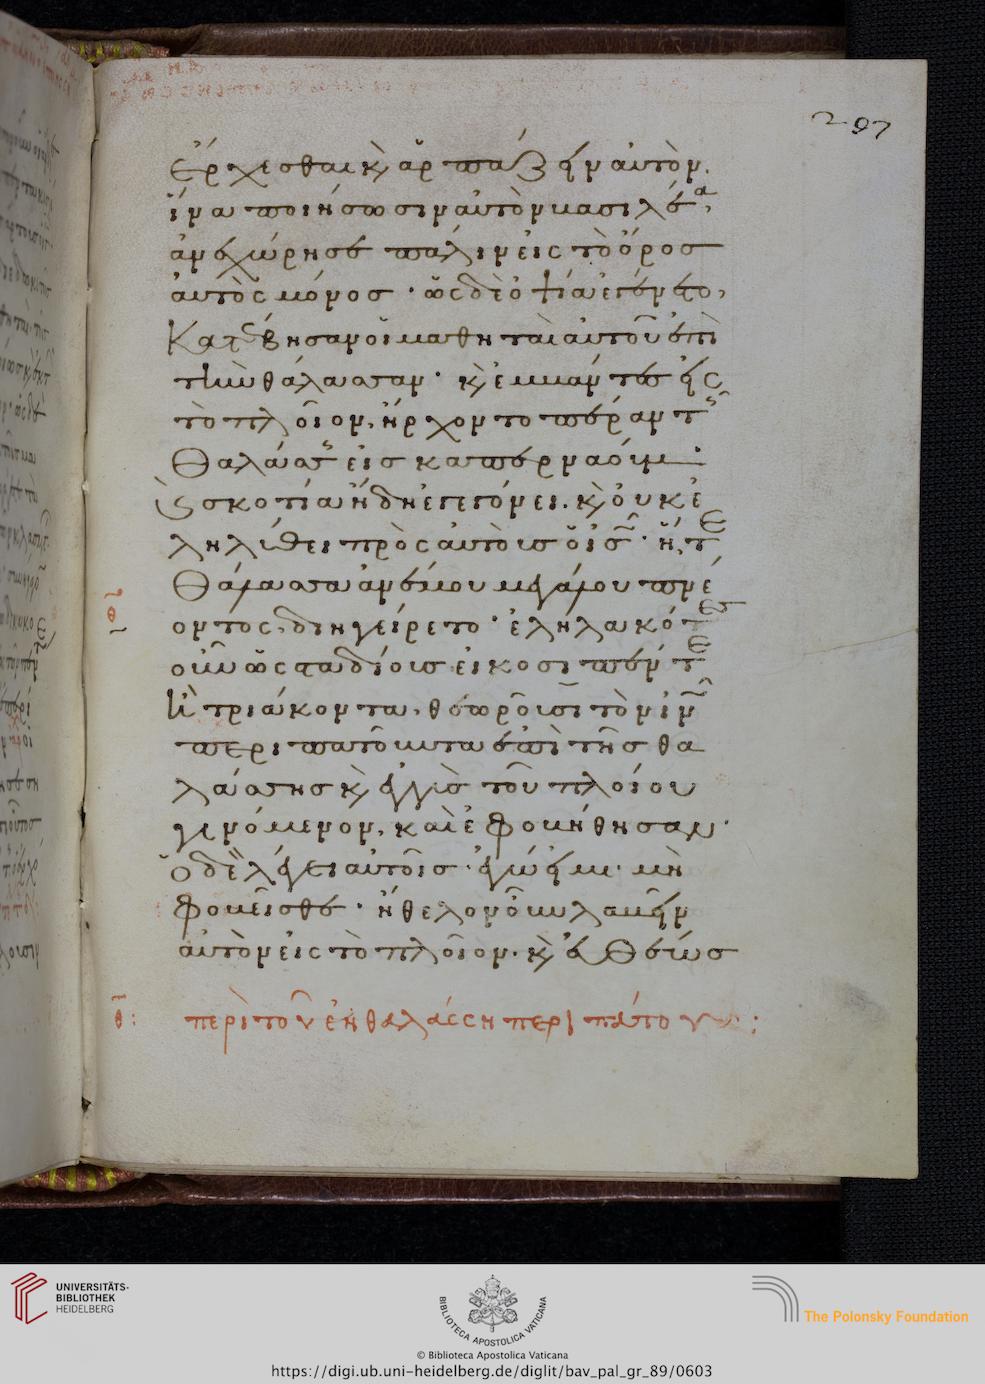 297
ἔρχεσθαι κ̀ ἁρπάζειν αὐτὸν.
ἵνα ποιήσωσιν αὐτὸν βασιλέα,
ἀνεχώρησε πάλιν εἰς τὸ ὄρος
αὐτὸς μόνος · ὡς δὲ ὀψία ἐγένετο,
Κατέβησαν οἱ μαθηταὶ αὐτοῦ ἐπὶ
τὴν θάλασσαν · κ̀ ἐμβάντες εἰς
τὸ πλοῖον, ἤρχοντο πέραν τῆς
Θαλάσσης εἰς καπερναούμ ·
κ̀ σκοτία ἤδη ἐγεγόνει. κ̀ οὐκ ἐ
ληλύθει πρὸς αὐτοὺς ὁ ις · ἥ, τε
Θάλασσα ἀνέμου μεγάλου πνέ
οντος, διηγείρετο · ἐληλακότες
οὖν ὡς σταδίους εἴκοσι πέντε
ἢ τριάκοντα, θεωροῦσι τὸν ιν
περιπατοῦντα ἐπὶ τῆς θα
λάσσης κ̀ ἐγγὺς τοῦ πλοίου
γινόμενον, καὶ ἐφοβήθησαν ·
ὁ δὲ λέγει αὐτοῖς · ἐγώ εἰμι · μὴ
φοβεῖσθε · ἤθελον οὖν λαβεῖν
αὐτὸν εἰς τὸ πλοῖον · κ̀ εὐθέως
θ: περὶ τοῦ ἐν θαλάσσῃ περιπάτου:
UNIVERSITÄTS-
BIBLIOTHEK
HEIDELBERG
BIBLIOTECA APOSTOLICA VATICANA
The Polonsky Foundation
© Biblioteca Apostolica Vaticana
https://digi.ub.uni-heidelberg.de/diglit/bav_pal_gr_89/0603